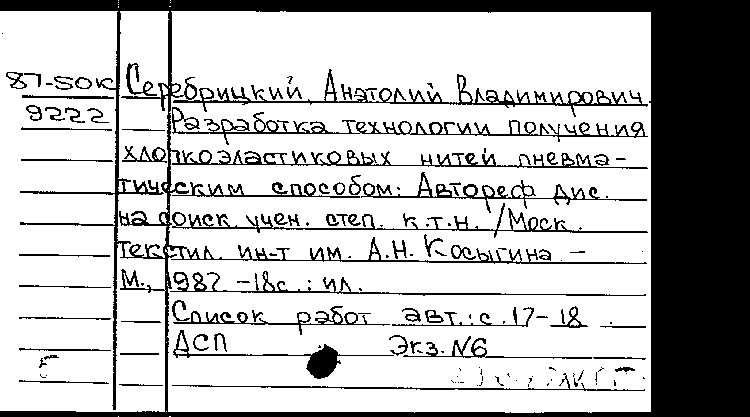 87-50к Серебрицкий, Анатолий Владимирович.
9222 Разработка технологии получения
хлопкоэластиковых нитей пневма-
тическим способом: Автореф дис.
на соиск. учен. степ. к.т.н. /Моск.
текстил. ин-т им. А.Н. Косыгина -
М., 1987. -18с.: ил.
Список работ авт.: с.17-18
ДСП Экз. №6